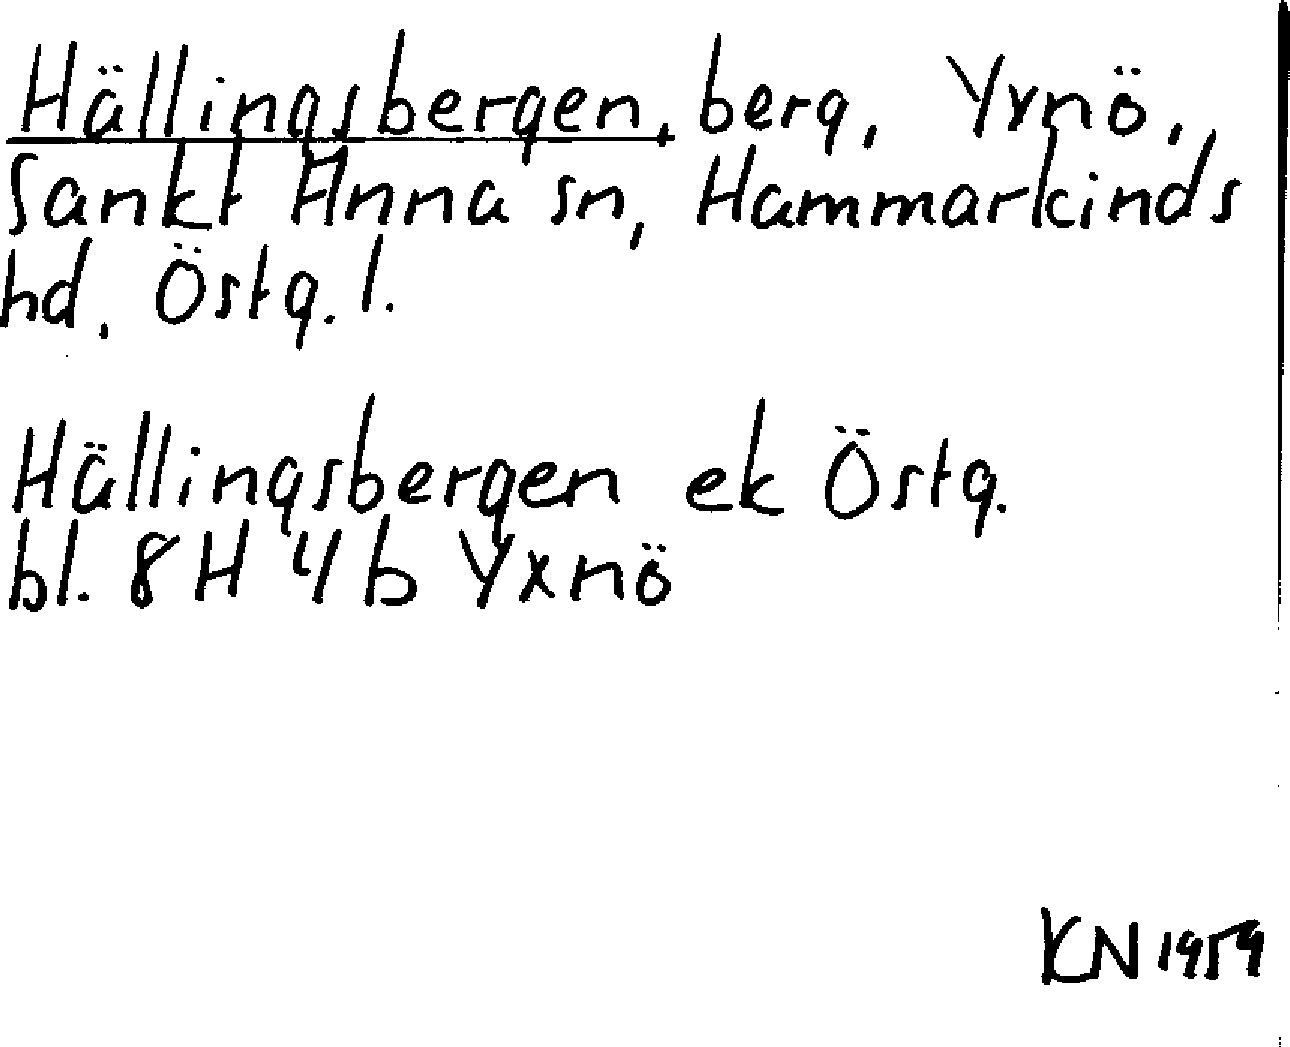 Hällingsbergen, berg, Yrnö,
Sankt Anna sn, Hammarkinds
hd, Östg. l.
Hällingsbergen ek Östg.
bl. 8H 4b Yxnö
KN 1959